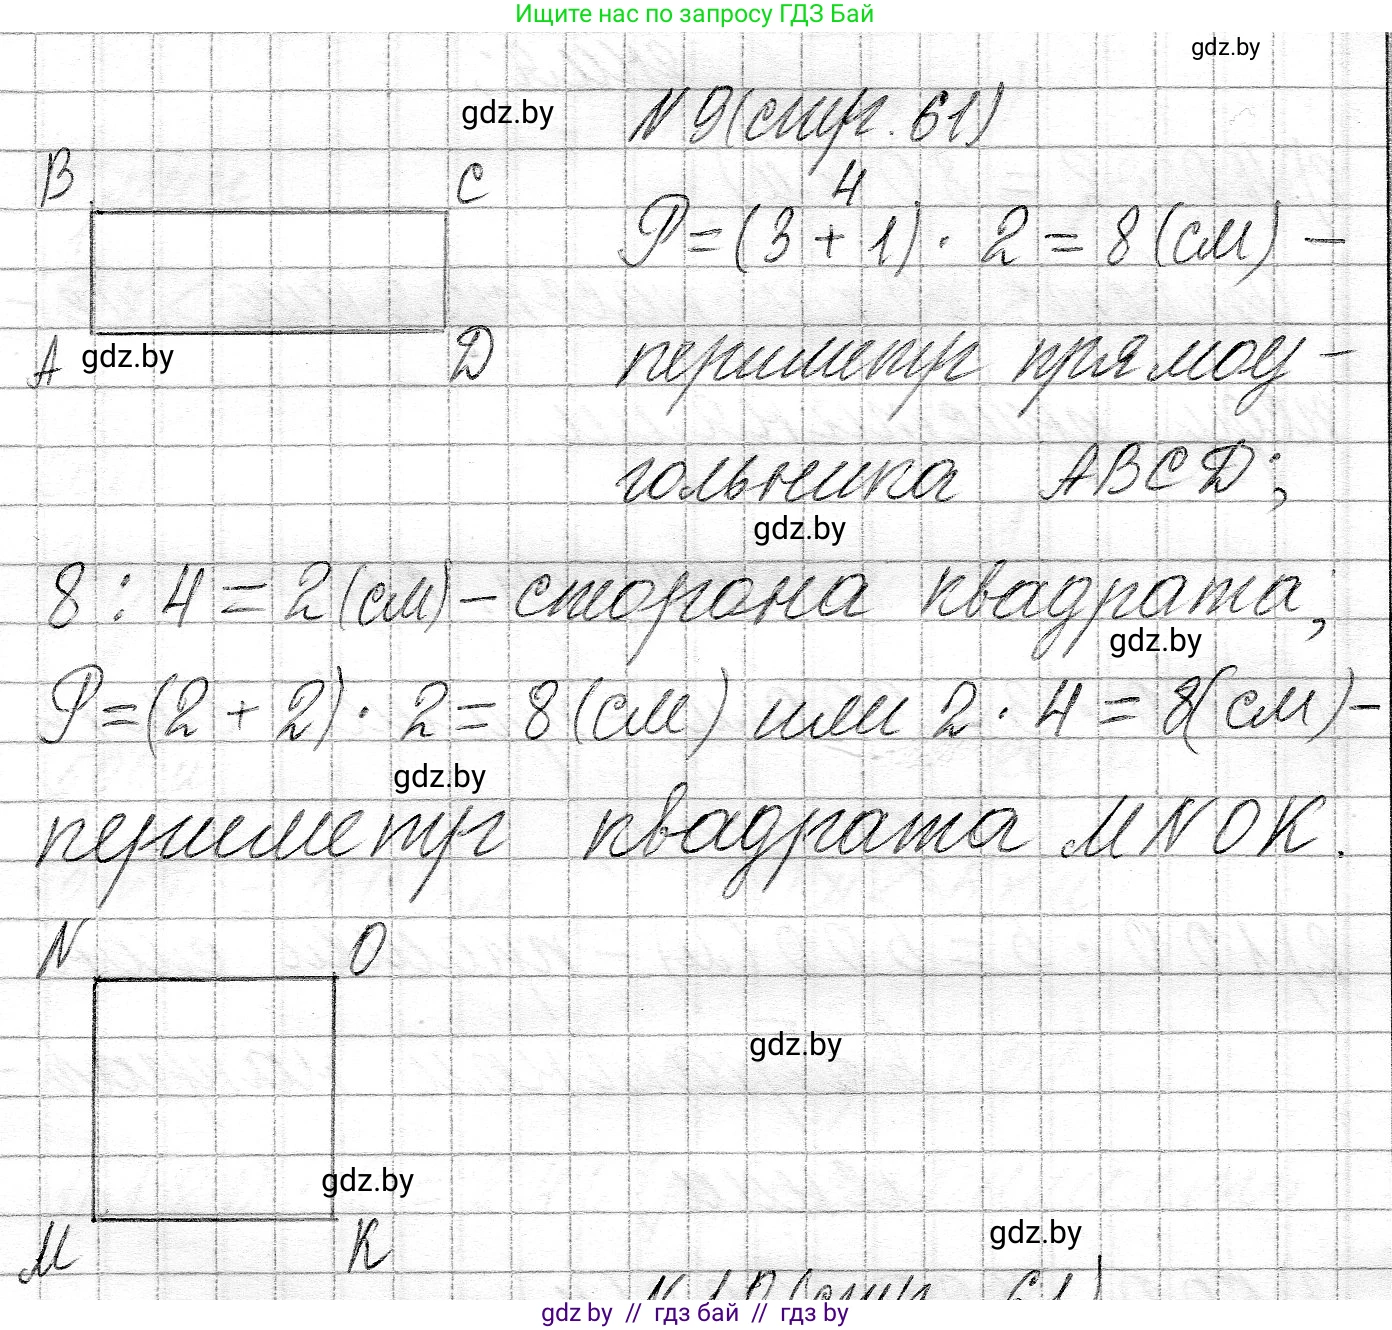 Ищите нас по запросу ГДЗ Бай
gdz.by
gdz.by
N 9 (стр. 61)
B
C
4
P=(3+1)·2=8(см)-
A
gdz.by
D
периметр прямоу-
гольника ABCD;
gdz.by
8:4=2(см)-сторона квадрата;
gdz.by
P=(2+2)·2=8(см) или 2·4=8(см)-
gdz.by
периметр квадрата MNOK.
N
O
gdz.by
gdz.by
M
K
gdz.by
N 10 (стр. 61)
gdz.by // гдз бай // гдз by